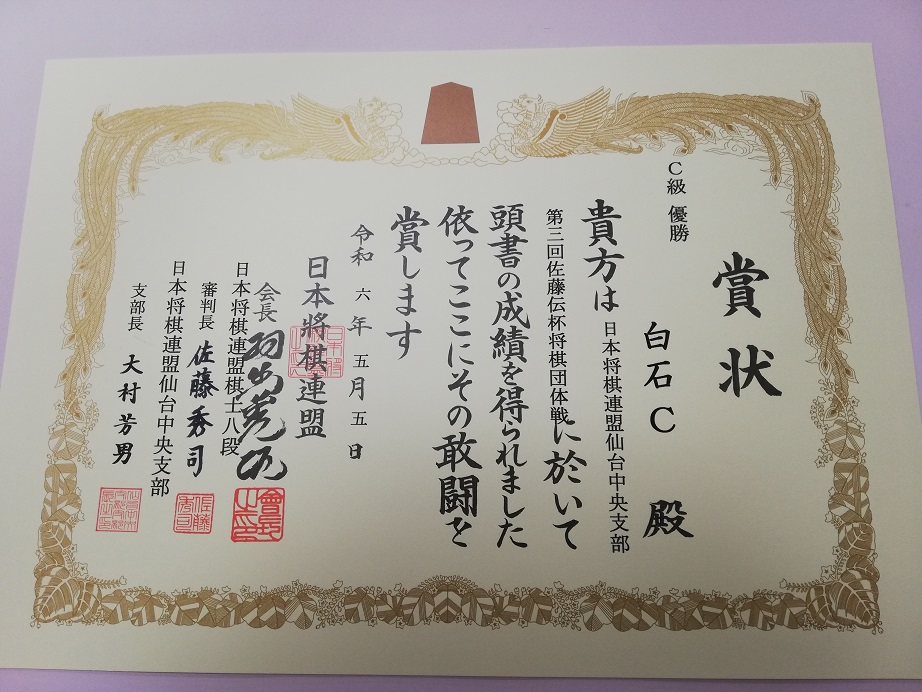 賞状
C級 優勝
白石C 殿
貴方は日本将棋連盟仙台中央支部
第三回佐藤伝杯将棋団体戦に於いて
頭書の成績を得られました
依ってここにその敢闘を
賞します
令和 六 年 五 月 五 日
日本将棋連盟
会長 羽生善治
日本将棋連盟棋士八段
審判長 佐藤秀司
日本将棋連盟仙台中央支部
支部長 大村芳男
會長之印
佐藤秀司